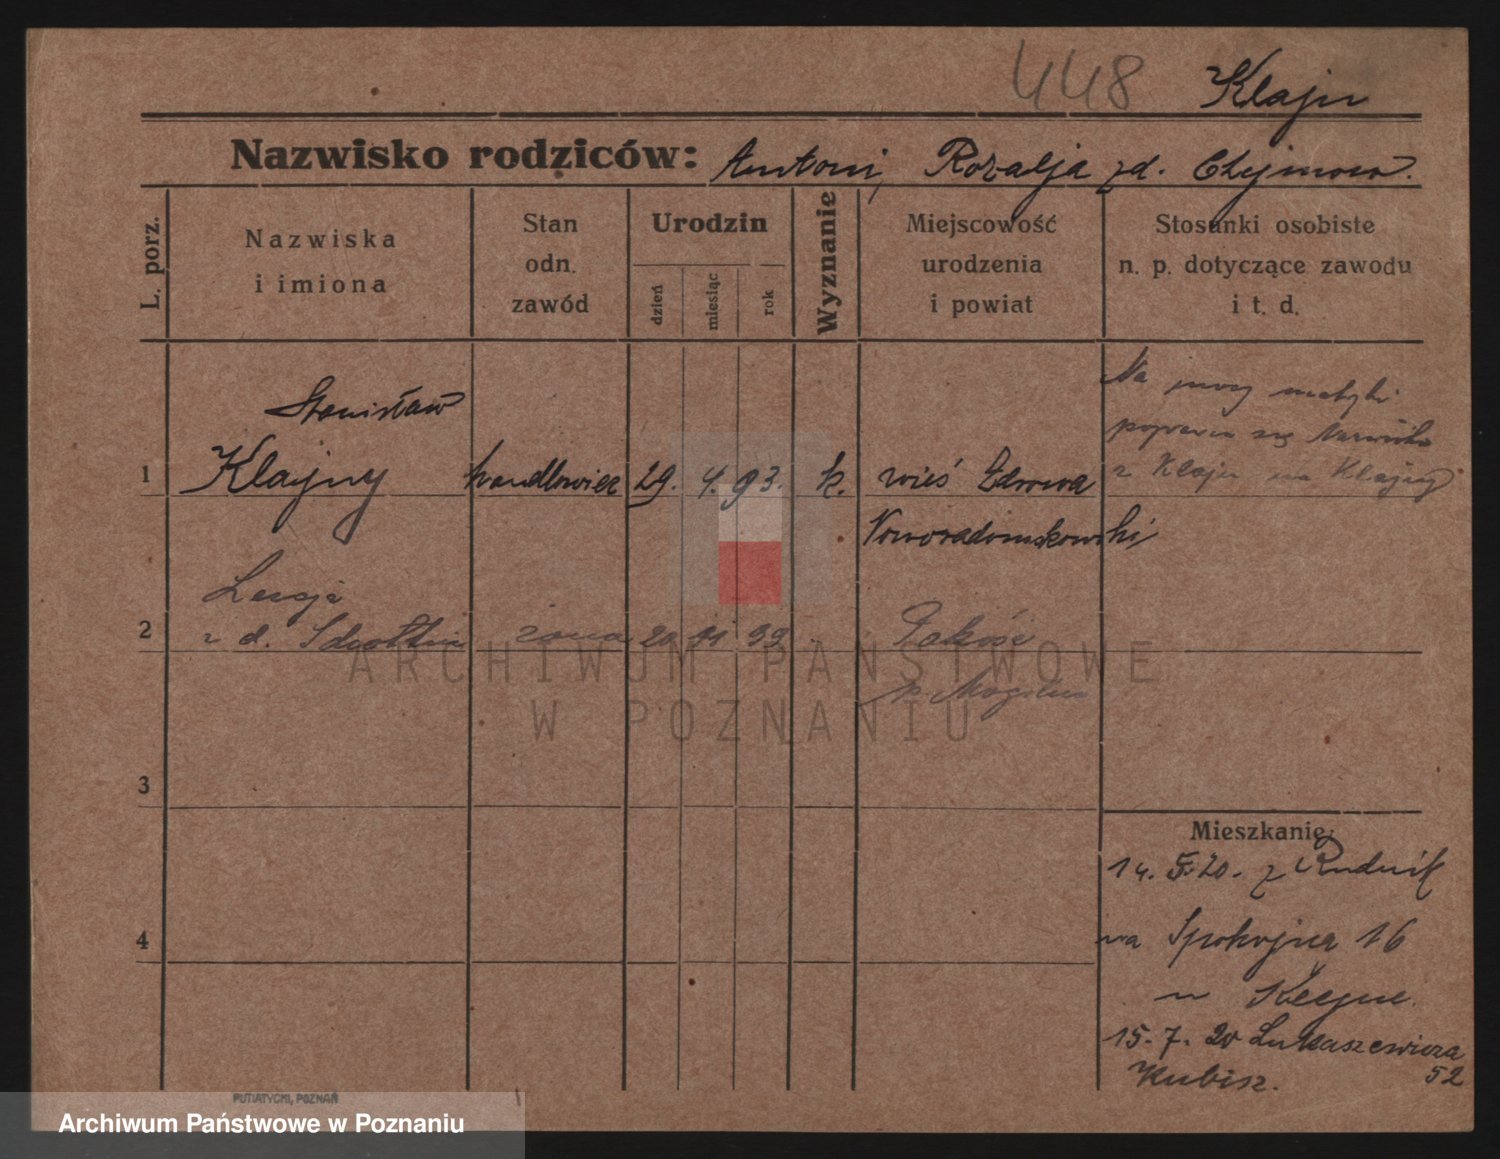 448 Klajn
Nazwisko rodziców: Antoni, Rozalja zd.
L. porz.
Nazwiska
i imiona
Stan
odn.
zawód
Urodzin
dzień
miesiąc
rok
Wyznanie
Miejscowość
urodzenia
i powiat
Stosunki osobiste
n. p. dotyczące zawodu
i t. d.
Stanisław
1 Klajny handlowiec 29. 4. 93. k. wieś Zdrowa
Noworadomskowski
Na mocy metryki
poprawia się Nazwisko
z Klajn na Klajny
2 z d. żona 20 11 99 Pakość
p. Mogilno
3
4
Mieszkanie:
14. 5. 20. z Rudnik
na Spokojna 16
u
15. 7. 20 Łukaszewicza
52
Kubisz.
PUTIATYCKI, POZNAŃ
ARCHIWUM PAŃSTWOWE
W POZNANIU
Archiwum Państwowe w Poznaniu